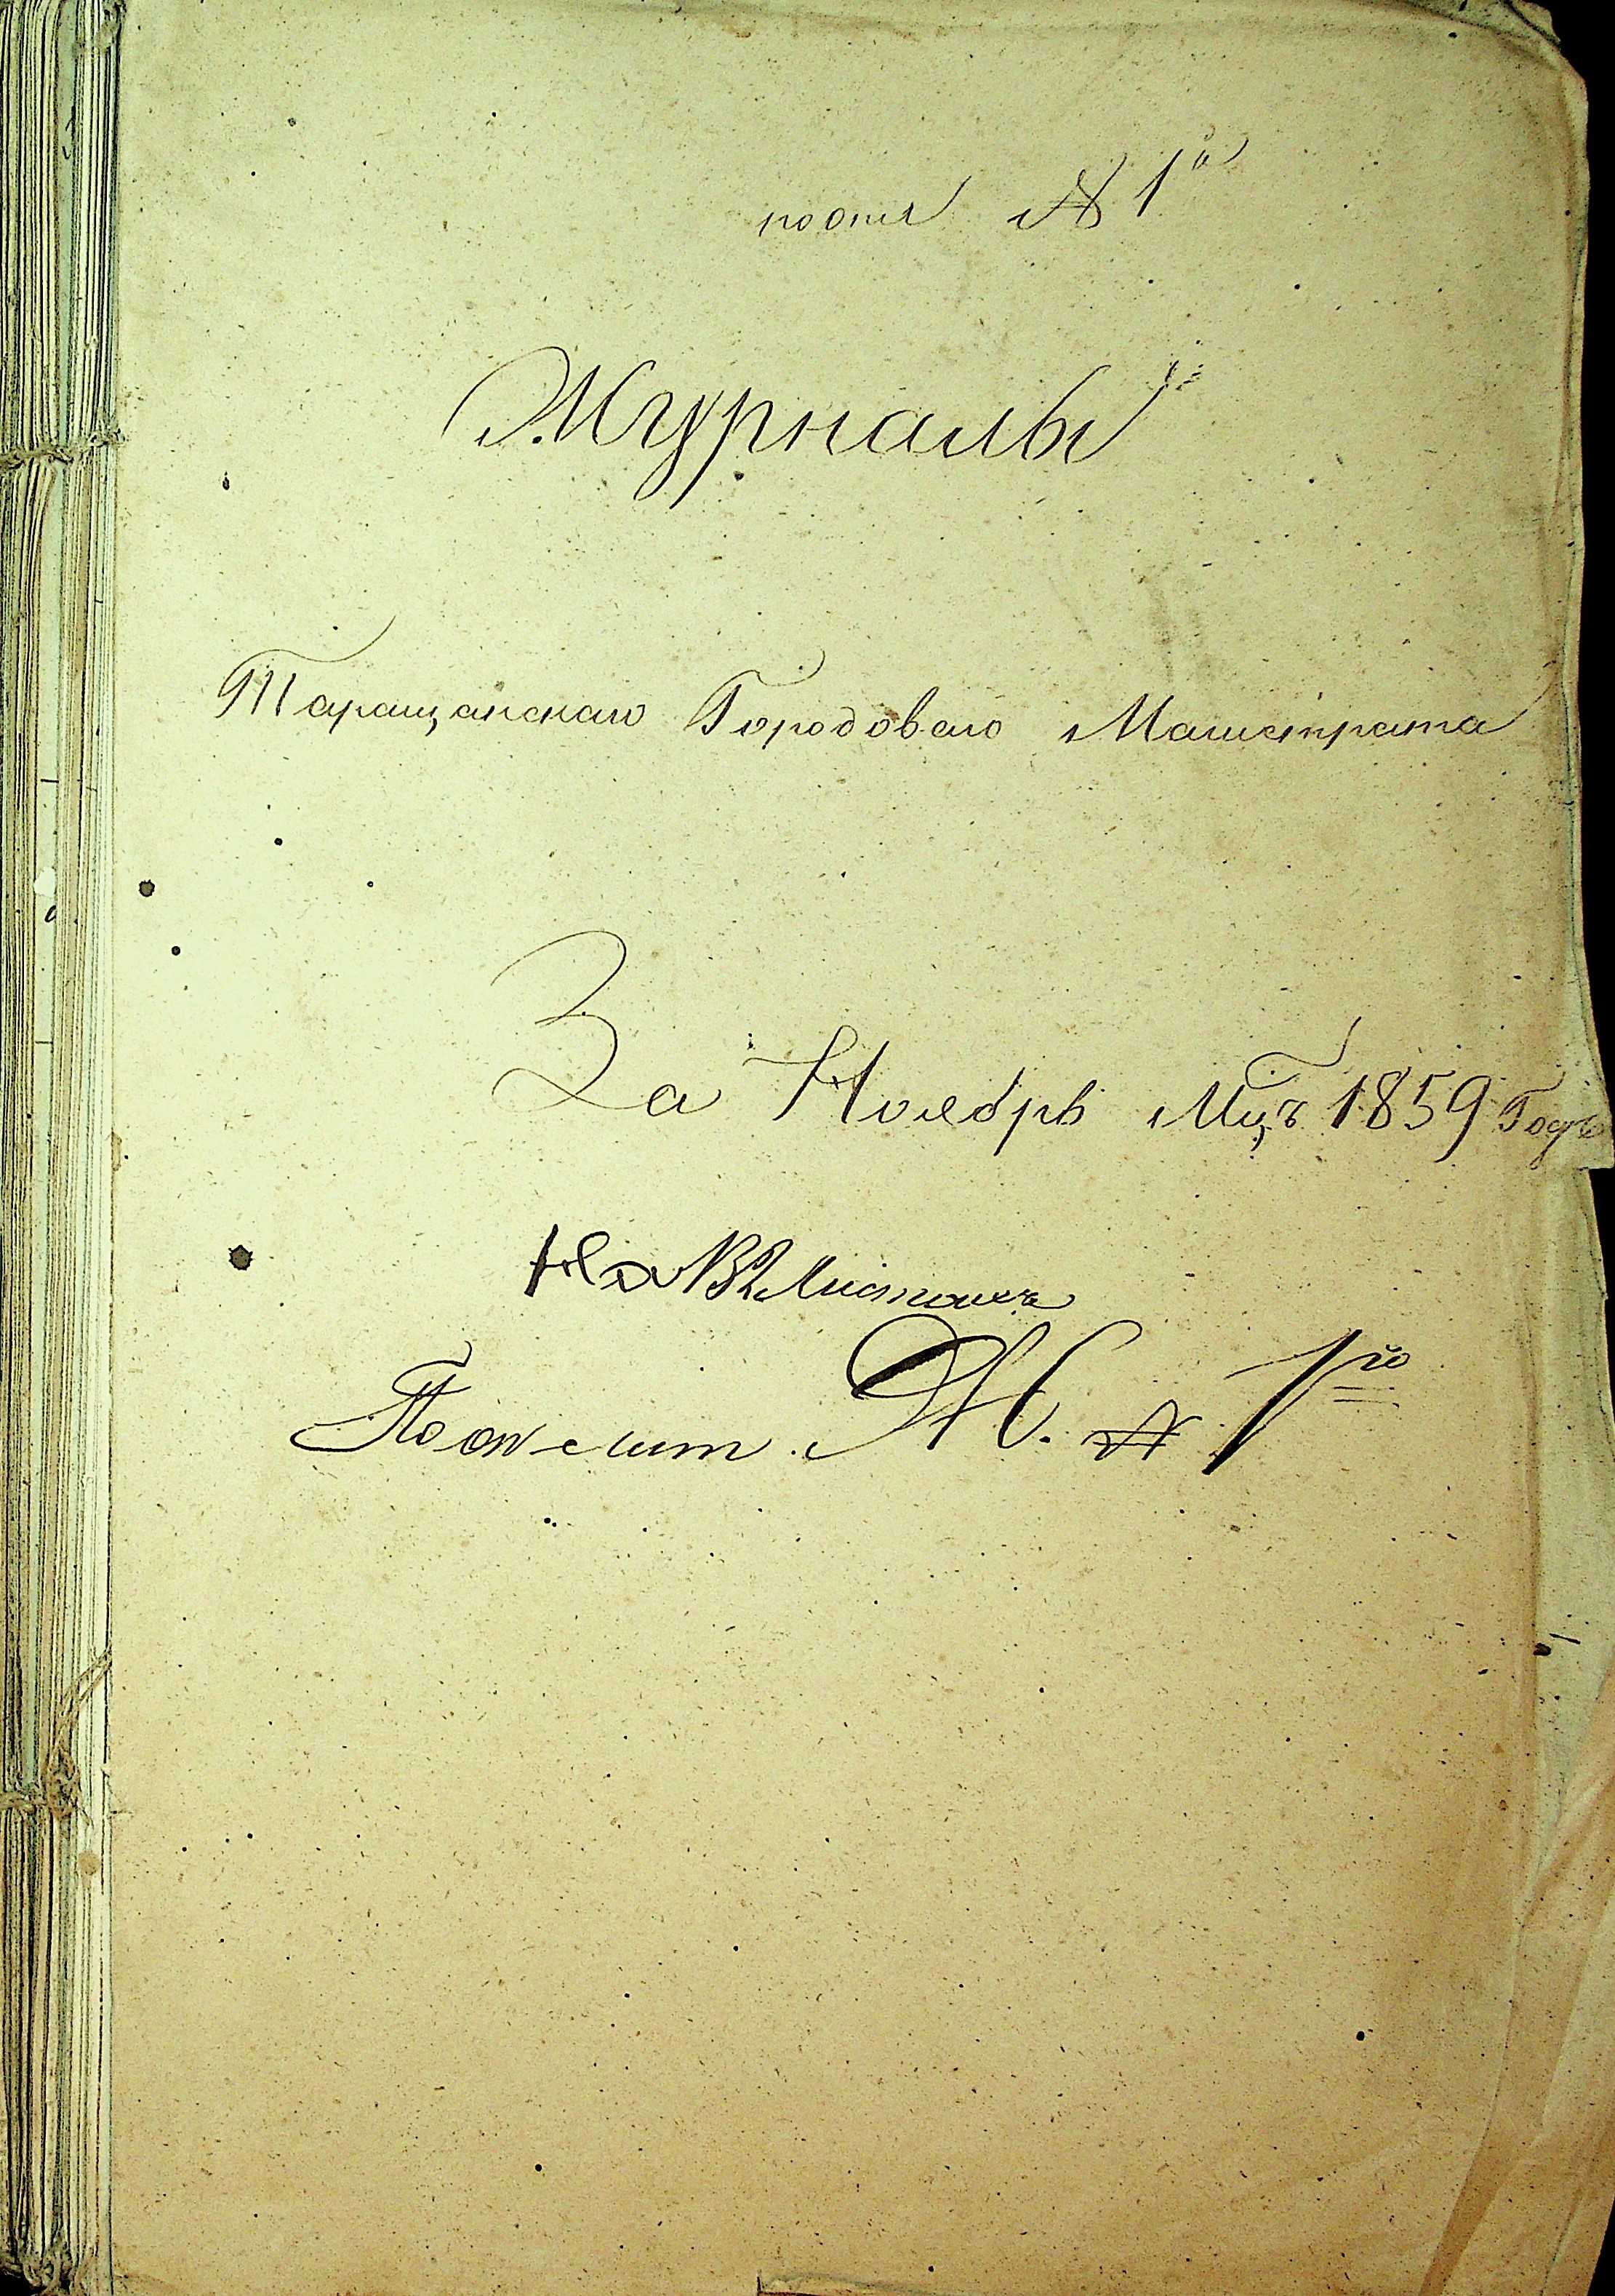 по оп. № 1й
Журналы
Таращанскаго Городоваго Магистрата
За Ноябрь Мцъ 1859 Годъ
На листахъ
По оп. Ж. № 1го